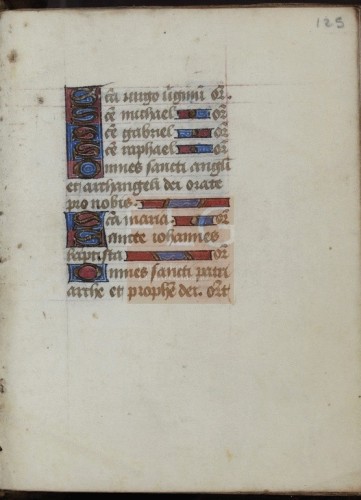 125
Sca virgo virginum or.
Sce michael or
Sce gabriel or
Sce raphael or
Omnes sancti angeli
et archangeli dei orate
pro nobis.
Sca maria. or
Sancte iohannes
baptista or
Omnes sancti patri
arche et prophe dei. ort